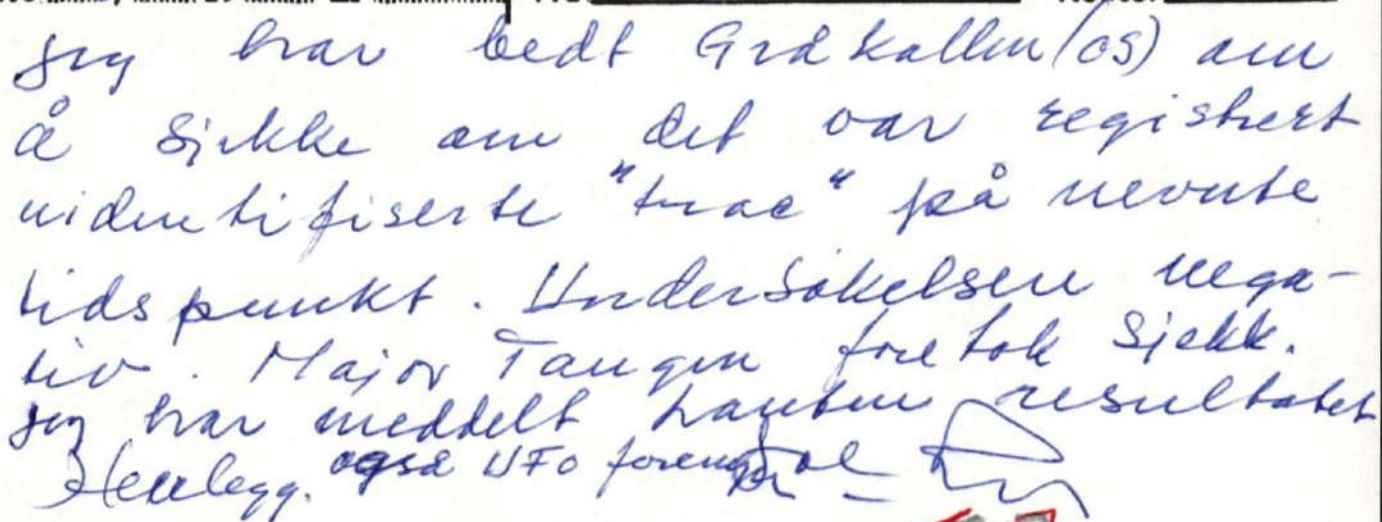 Jeg har bedt Gråkallen (OS) om
å sjekke om det var registrert
uidentifiserte "trac" på nevnte
tidspunkt. Undersøkelsen nega-
tiv. Major Tangen foretok sjekk.
Jeg har meddelt resultatet
Henlegg. også UFO